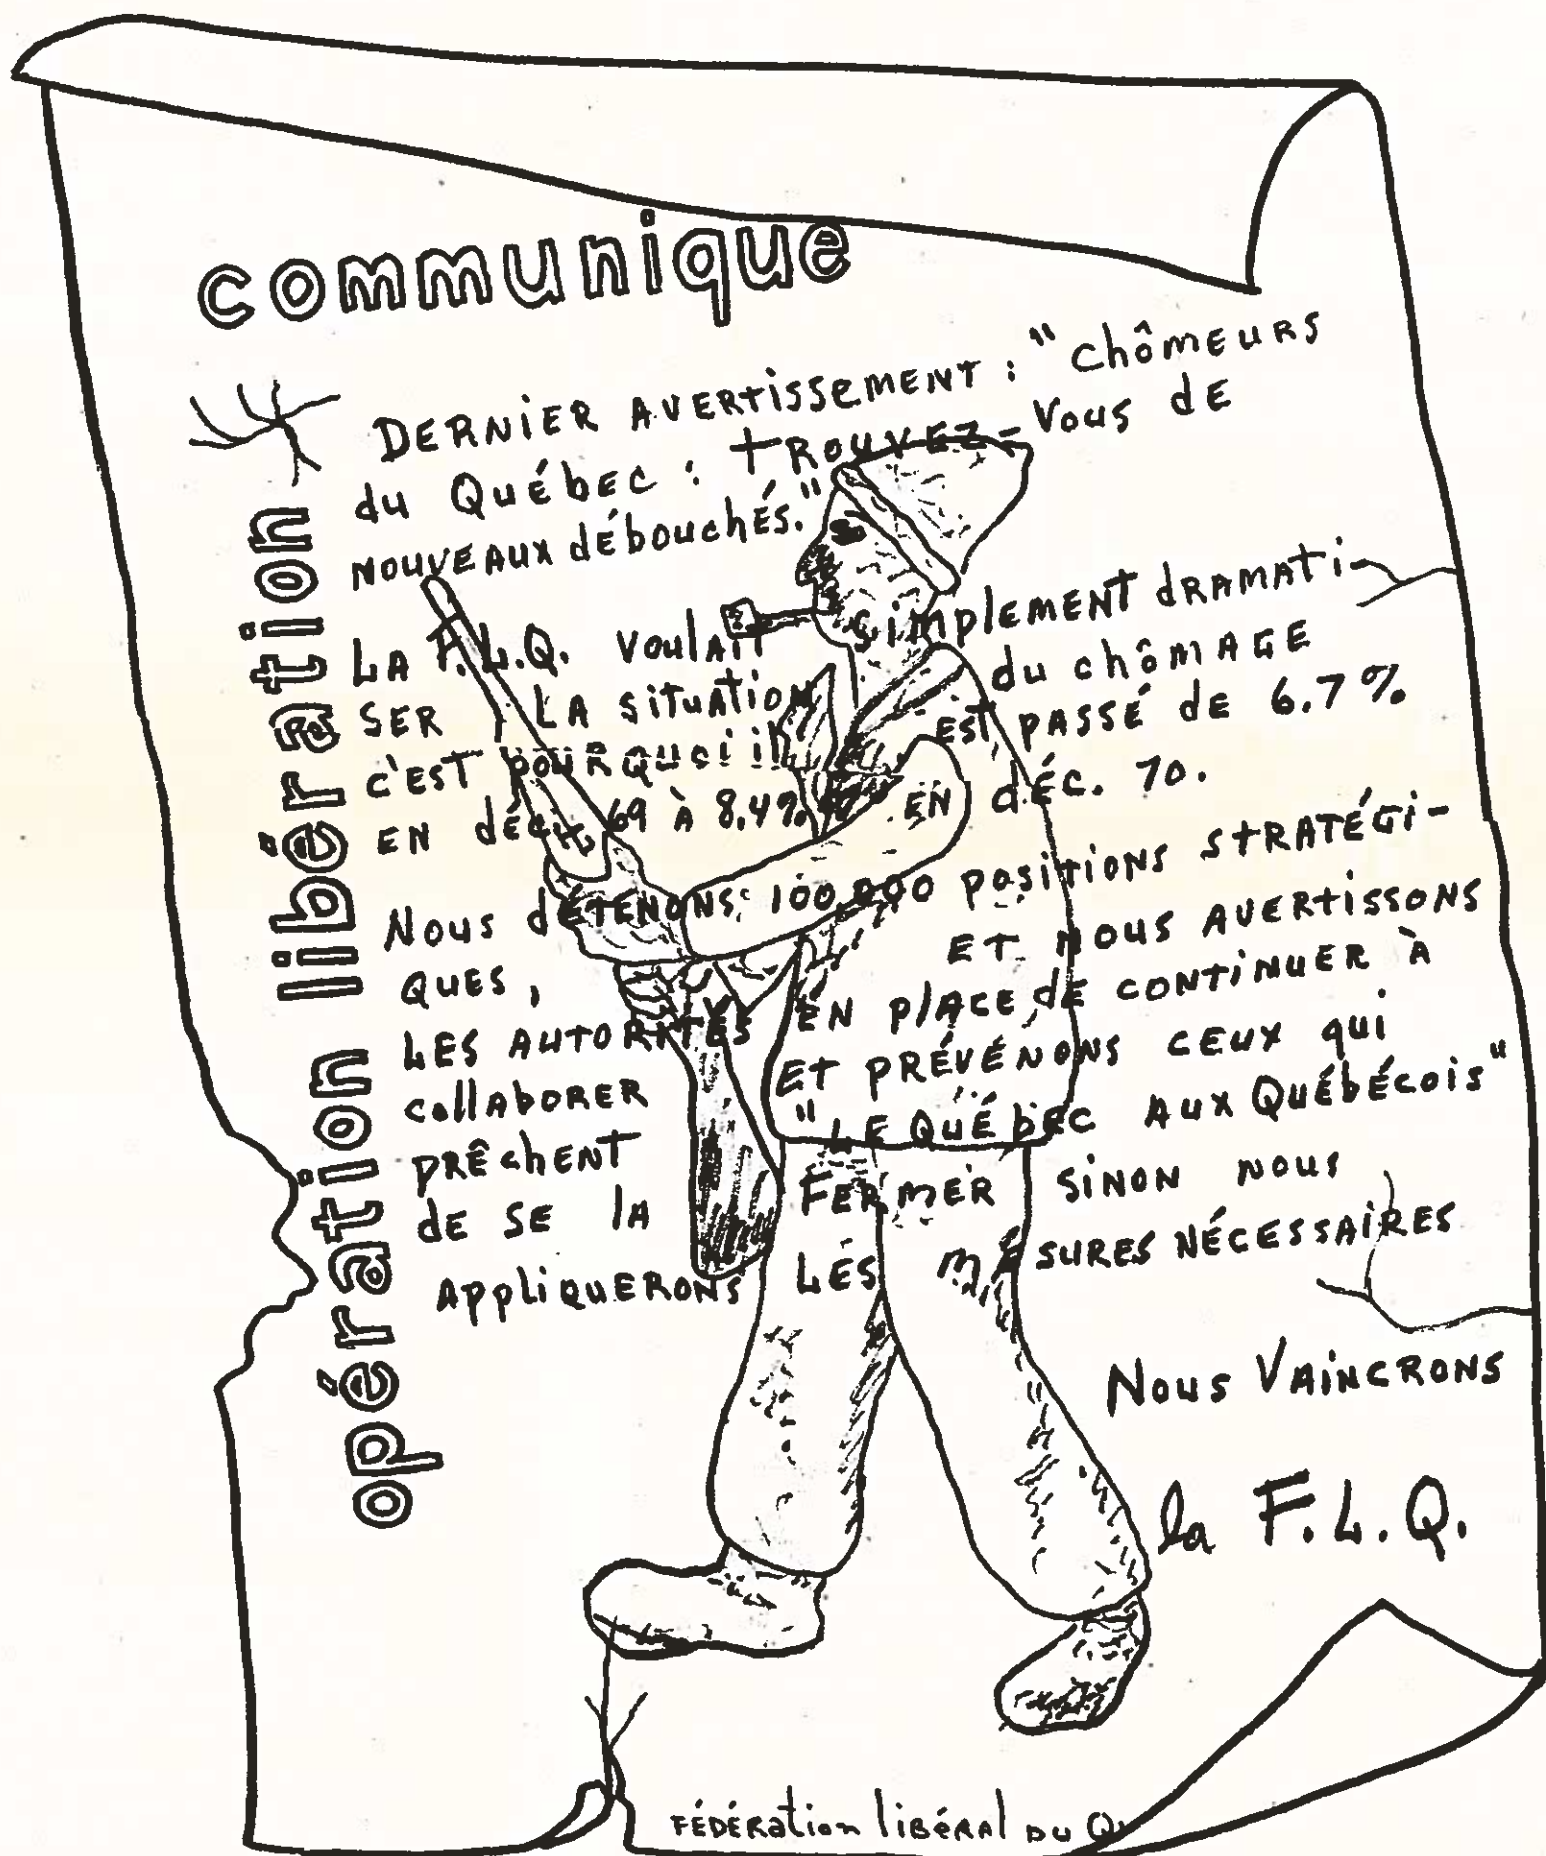 communique
opération libération
DERNIER AVERTISSEMENT : "Chômeurs
du Québec : tROUVEZ-Vous de
NOUVEAUX débouchés."
LA F.L.Q. voulait simplement dramati-
SER LA situation du chômage
c'EST POURQUOI il EST PASSÉ de 6.7%
EN déc. 69 À 8.4% EN déc. 70.
Nous détENONS 100 000 positions stRATÉGi-
QUES, ET NOUS AVERtissons
LES AUTORITÉS EN plACE dE CONTINUER À
collABORER ET PRÉVÉNONS CEUX qui
PRÊchENT "LE QuÉbEC AUX Québécois"
de SE lA FERMER SINON NOUS
AppliQUERONS LES MESURES NÉCESSAIRES
Nous VAINCRONS
la F.L.Q.
FÉDÉRation libéRAl DU Q.